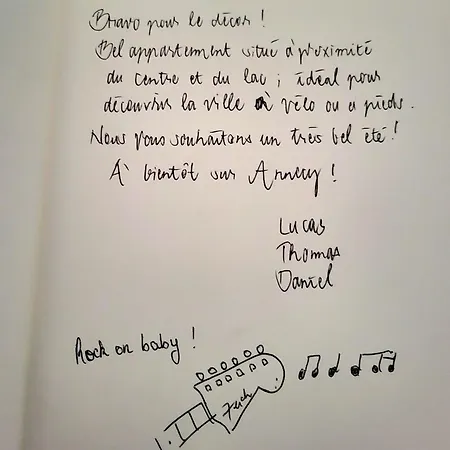 Bravo pour le décor !
Bel appartement situé à proximité
du centre et du lac ; idéal pour
découvrir la ville à vélo ou a pieds.
Nous vous souhaitons un très bel été !
À bientôt sur Annecy !
Lucas
Thomas
Daniel
Rock on baby !